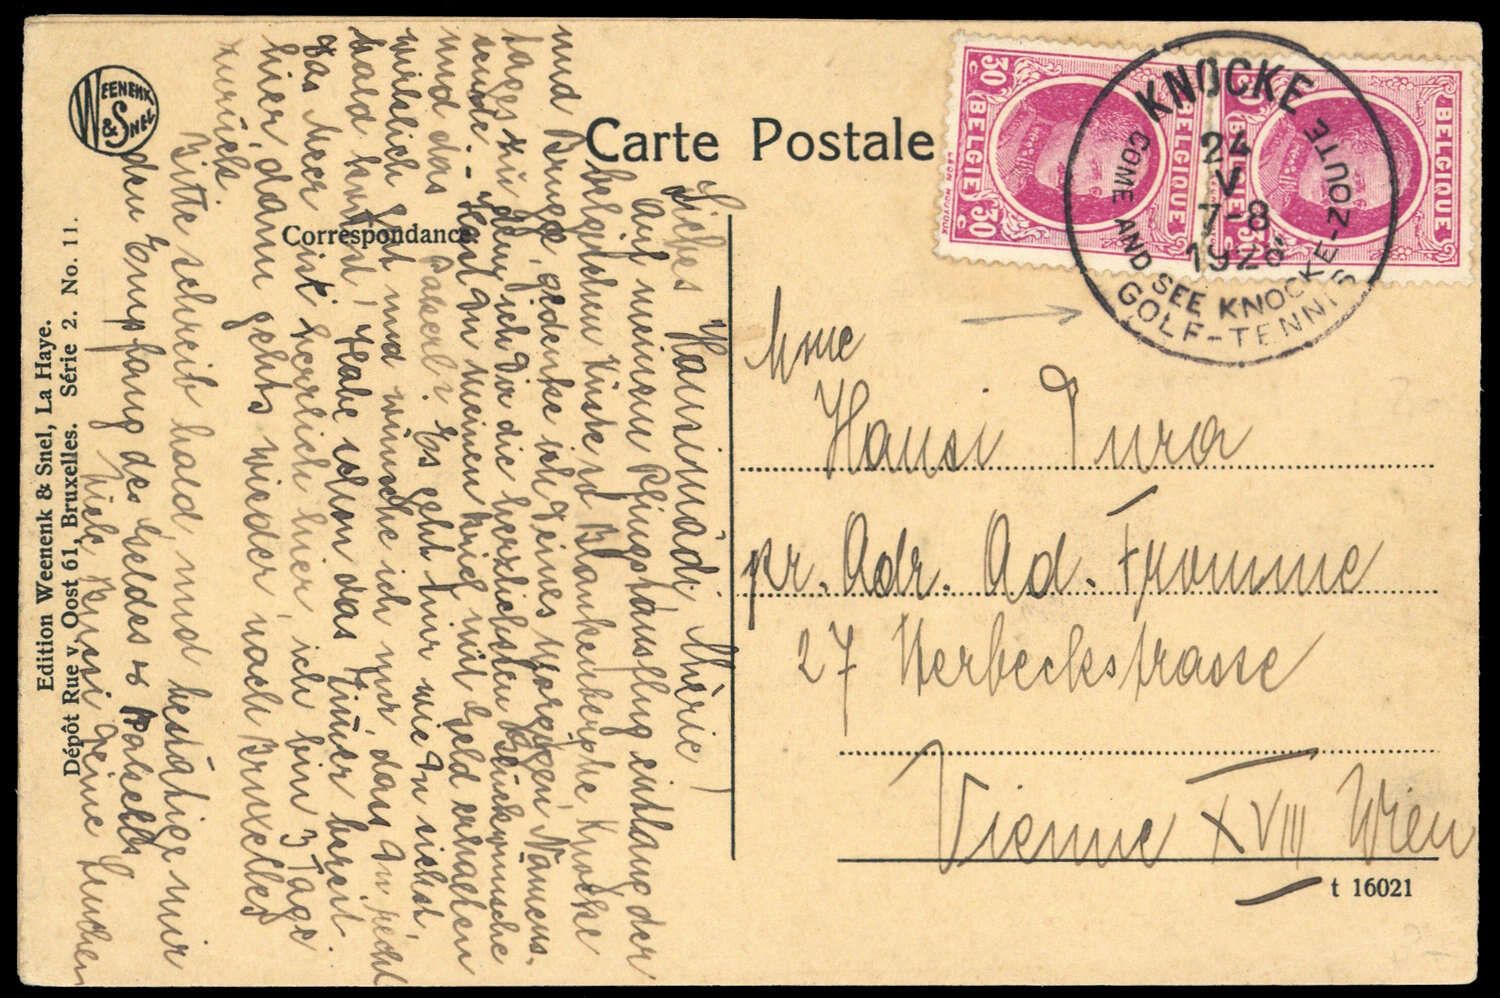 WEENENK & SNEL
Carte Postale
Correspondance.
Liebes Hansimädi, Chérie!
Auf meinem Pfingstausflug entlang der
belgischen Küste v. Blankenberghe, Knocke
und Brügge, gedenke ich Deines morgigen Namens-
tages
ich Dir die herzlichsten Glückwünsche
sende. - Hast Du meinen Brief mit Geld erhalten
und das Packerl? Es geht mir wie Du siehst,
wirklich gut und wünsche ich nur dass Du recht
bald kommst! Habe schon das Zimmer bereit.
Das Meer ist herrlich hier, ich bin 3 Tage
hier, dann gehts wieder nach Bruxelles
zurück.
Bitte schreib bald, und bestätige mir
den Empfang des Geldes &
Viele Bussi Deine
Edition Weenenk & Snel, La Haye.
Dépôt Rue v. Oost 61, Bruxelles. Série 2. No. 11.
30 C BELGIQUE 30
BELGIQUE
BELGIQUE
KNOCKE
24
V
7-8
1928
COME AND SEE KNOCKE-ZOUTE
GOLF-TENNIS
Mme
Hansi Tura
pr. Adr. Ad. Fromme
27 Herbeckstrasse
Vienne XVIII Wien
t 16021